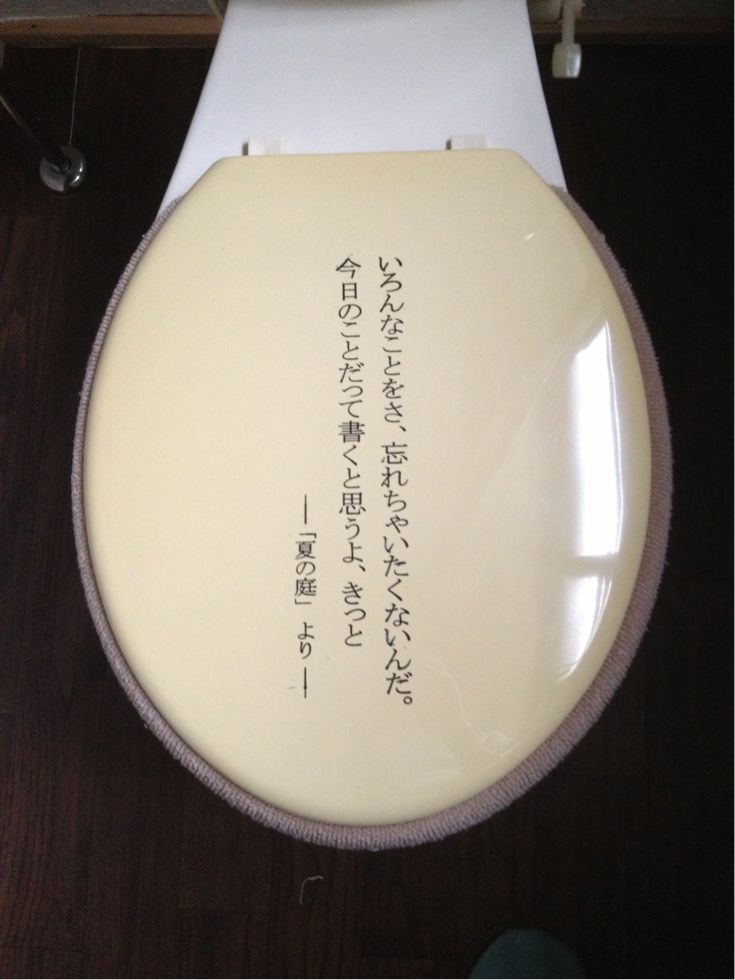 いろんなことをさ、忘れちゃいたくないんだ。
今日のことだって書くと思うよ、きっと
―「夏の庭」より―